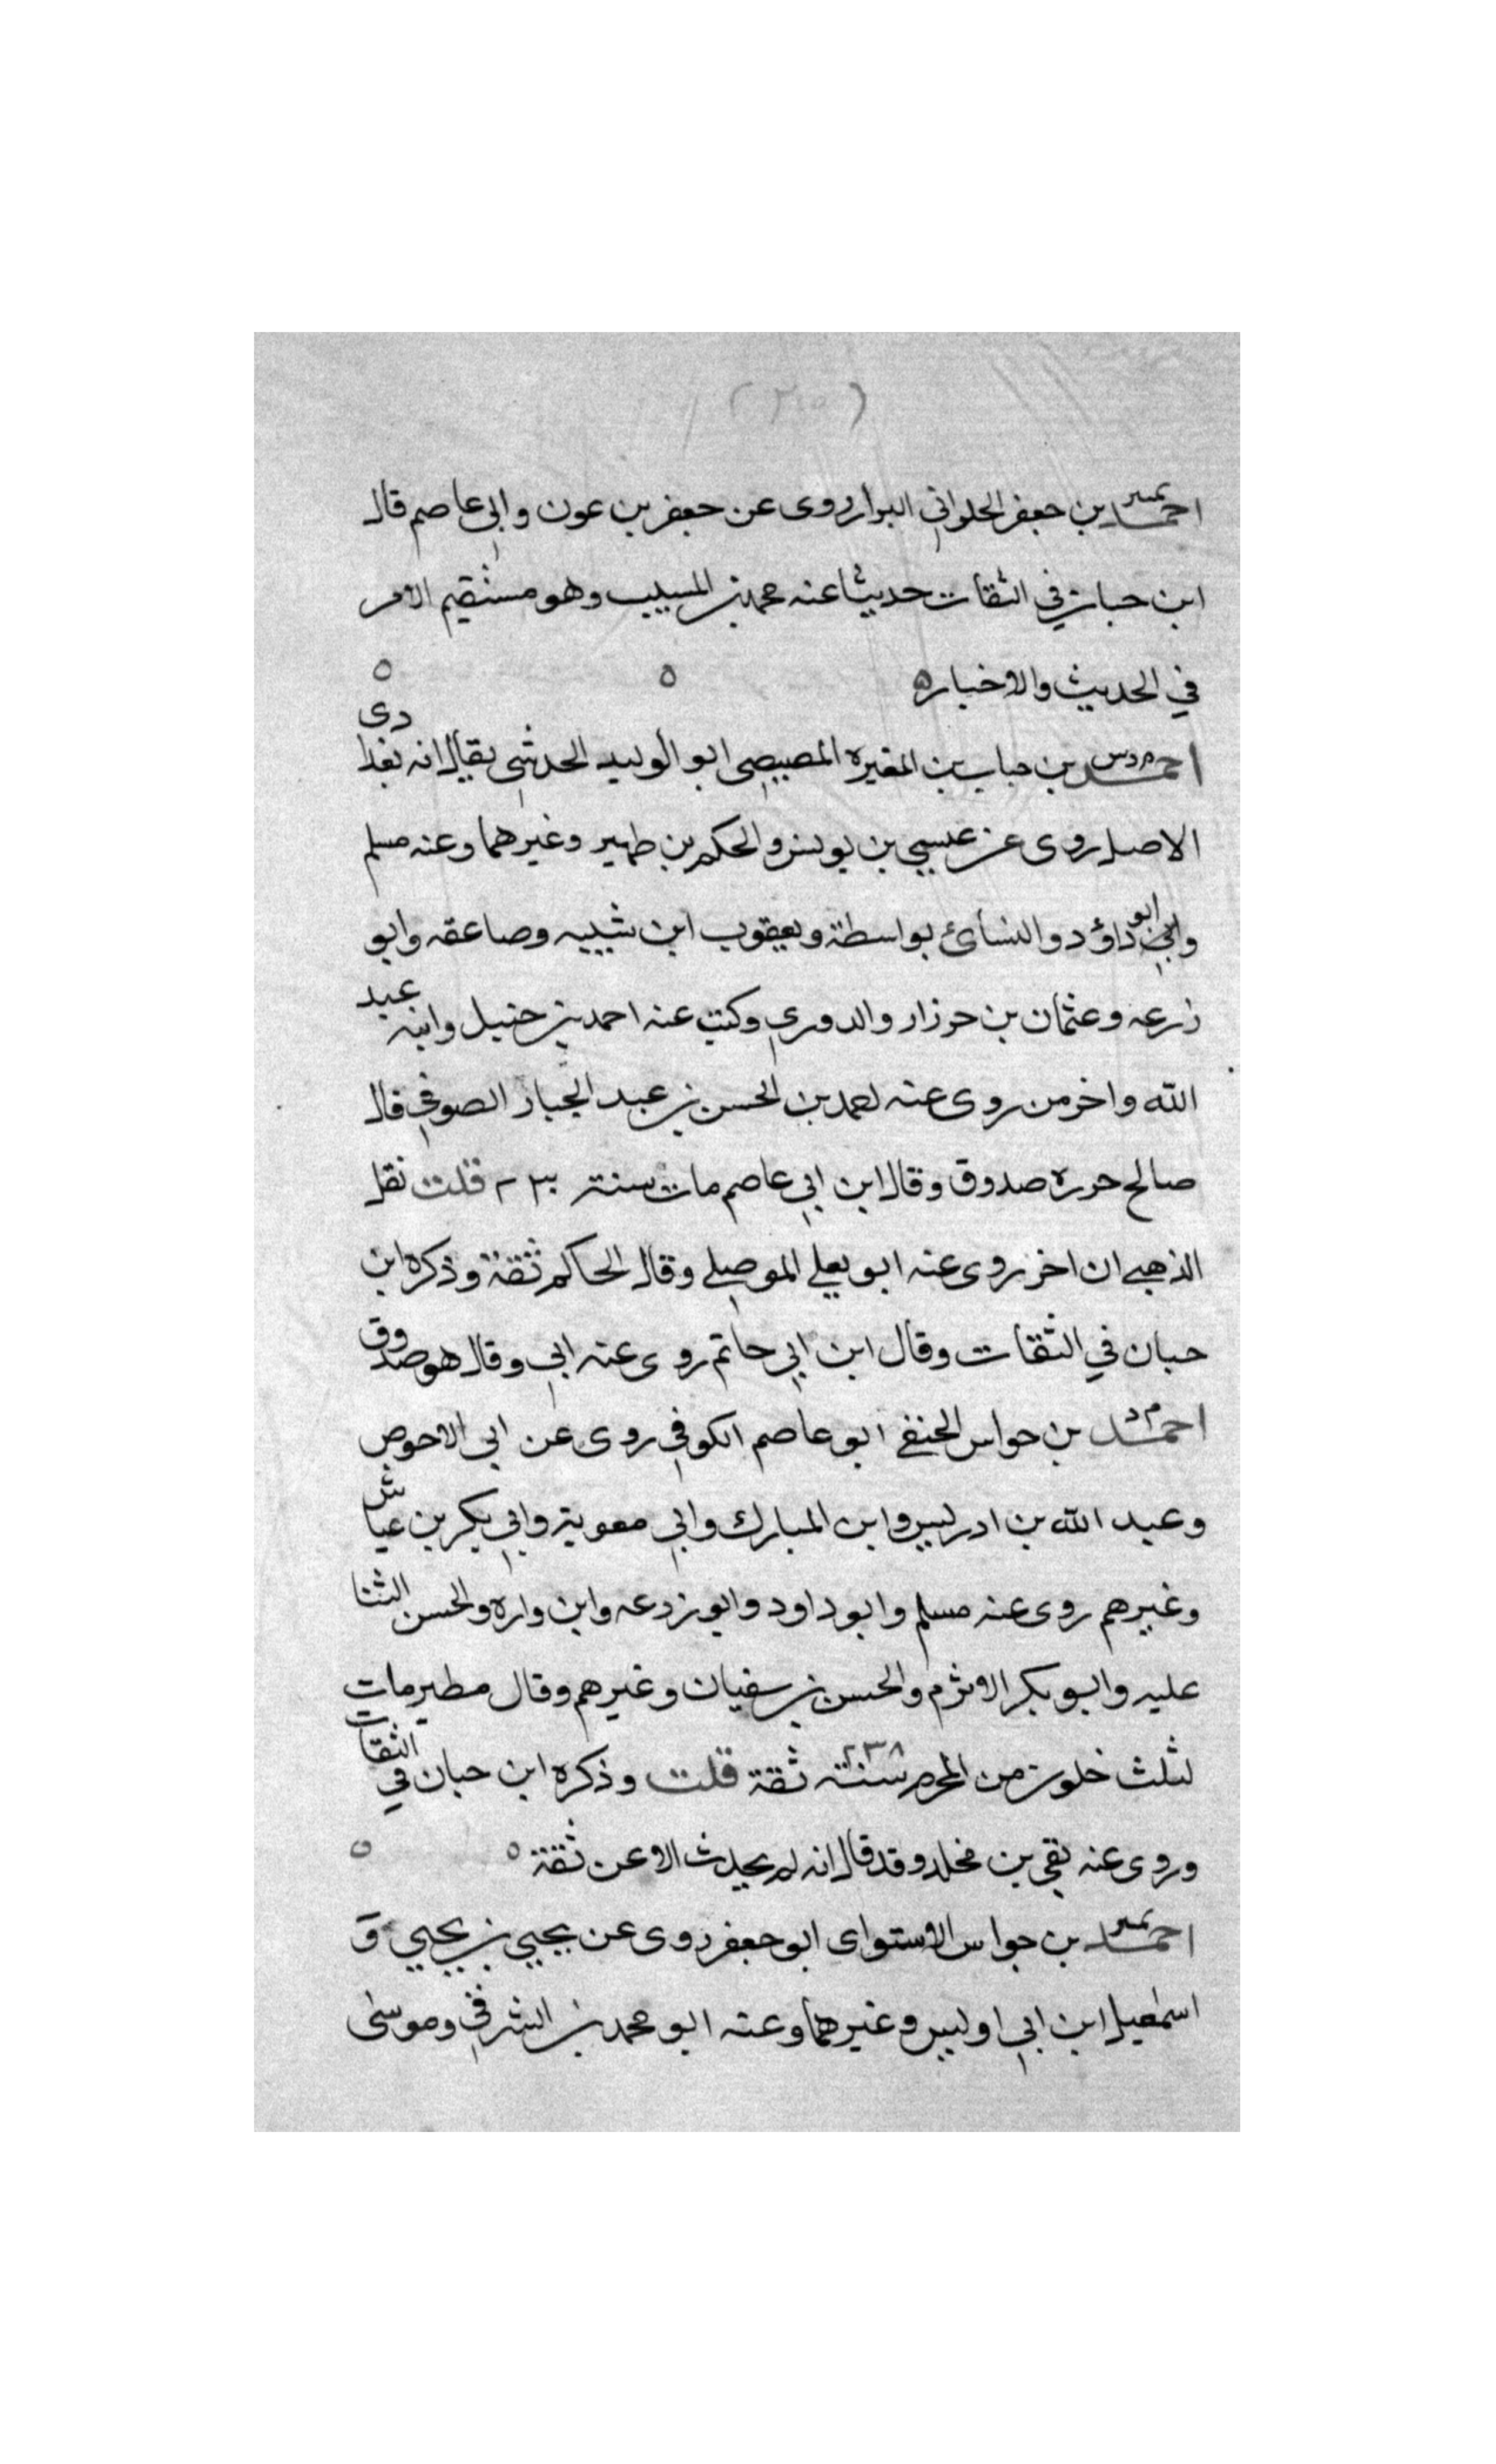 احمد بن جعفر الحلواني البزار روى عن جعفر بن عون وابي عاصم قال
ابن حبان في الثقات حديثا عنه محمد بن المسيب وهو مستقيم الامر
في الحديث والاخبار ه
احمد بن حباب بن المغيره المصيصى ابو الوليد الحدثى يقال انه بغدادى
الاصل روى عن عيسى بن يونس والحكم بن ظهير وغيرهما وعنه مسلم
وابو داؤد والنسائ بواسطة ويعقوب ابن شيبه وصاعقه وابو
زرعه وعثمان بن حرزاد والدوري وكتب عنه احمد بن حنبل وابنه عبد
الله واخر من روى عنه احمد بن الحسن بن عبد الجبار الصوفي قال
صالح جزره صدوق وقال ابن ابي عاصم مات سنة ٢٣٠ قلت نقل
الذهبي ان اخر روى عنه ابو يعلى الموصلي وقال الحاكم ثقة وذكره ابن
حبان في الثقات وقال ابن ابي حاتم روى عنه ابي وقال هو صدوق
احمد بن حواس الحنفي ابو عاصم الكوفي روى عن ابي الاحوص
وعبد الله بن ادريس وابن المبارك وابي معوية وابي بكر بن عياش
وغيرهم روى عنه مسلم وابو داود وابو زرعه وابن واره والحسن الثنا
عليه وابو بكر الاثرم والحسن بن سفيان وغيرهم وقال مطير مات
لثلث خلون من المحرم سنة ٢٣٨ ثقة قلت وذكره ابن حبان في الثقات
وروى عنه بقي بن مخلد وقد قال انه لم يحدث الا عن ثقة ه
احمد بن جواس الاستواى ابو جعفر روى عن يحيي بن يحيي و
اسمعيل ابن ابي اوليس وغيرهما وعنه ابو محمد بن الشرفي وموسى